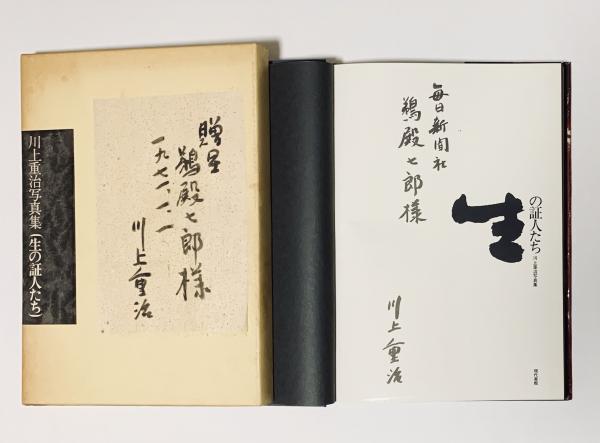 川上重治写真集(生の証人たち)
贈呈
鵜殿七郎様
一九七一、一、一
川上重治
毎日新聞社
鵜殿七郎様
生の証人たち
川上重治写真集
川上重治
現代書館